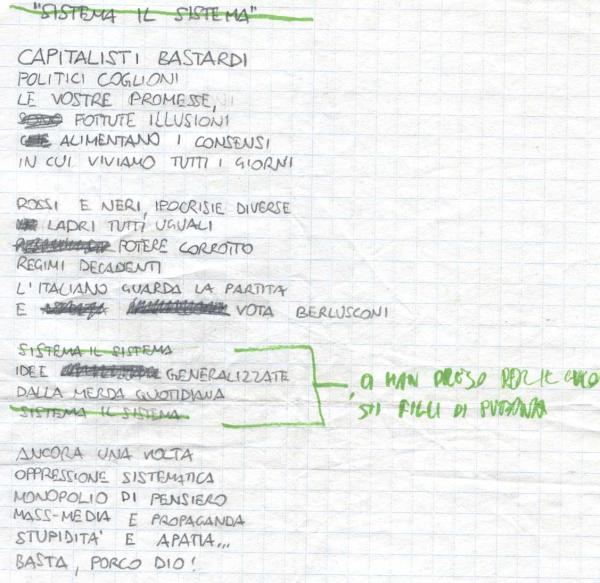 "SISTEMA IL SISTEMA"
CAPITALISTI BASTARDI
POLITICI COGLIONI
LE VOSTRE PROMESSE,
FOTTUTE ILLUSIONI
ALIMENTANO I CONSENSI
IN CUI VIVIAMO TUTTI I GIORNI
ROSSI E NERI, IPOCRISIE DIVERSE
LADRI TUTTI UGUALI
POTERE CORROTTO
REGIMI DECADENTI
L'ITALIANO GUARDA LA PARTITA
E VOTA BERLUSCONI
SISTEMA IL SISTEMA
IDEE GENERALIZZATE
DALLA MERDA QUOTIDIANA
SISTEMA IL SISTEMA
CI HAN PRESO PER IL CULO
STI FIGLI DI PUTTANA
ANCORA UNA VOLTA
OPPRESSIONE SISTEMATICA
MONOPOLIO DI PENSIERO
MASS-MEDIA E PROPAGANDA
STUPIDITA' E APATIA...
BASTA, PORCO DIO!